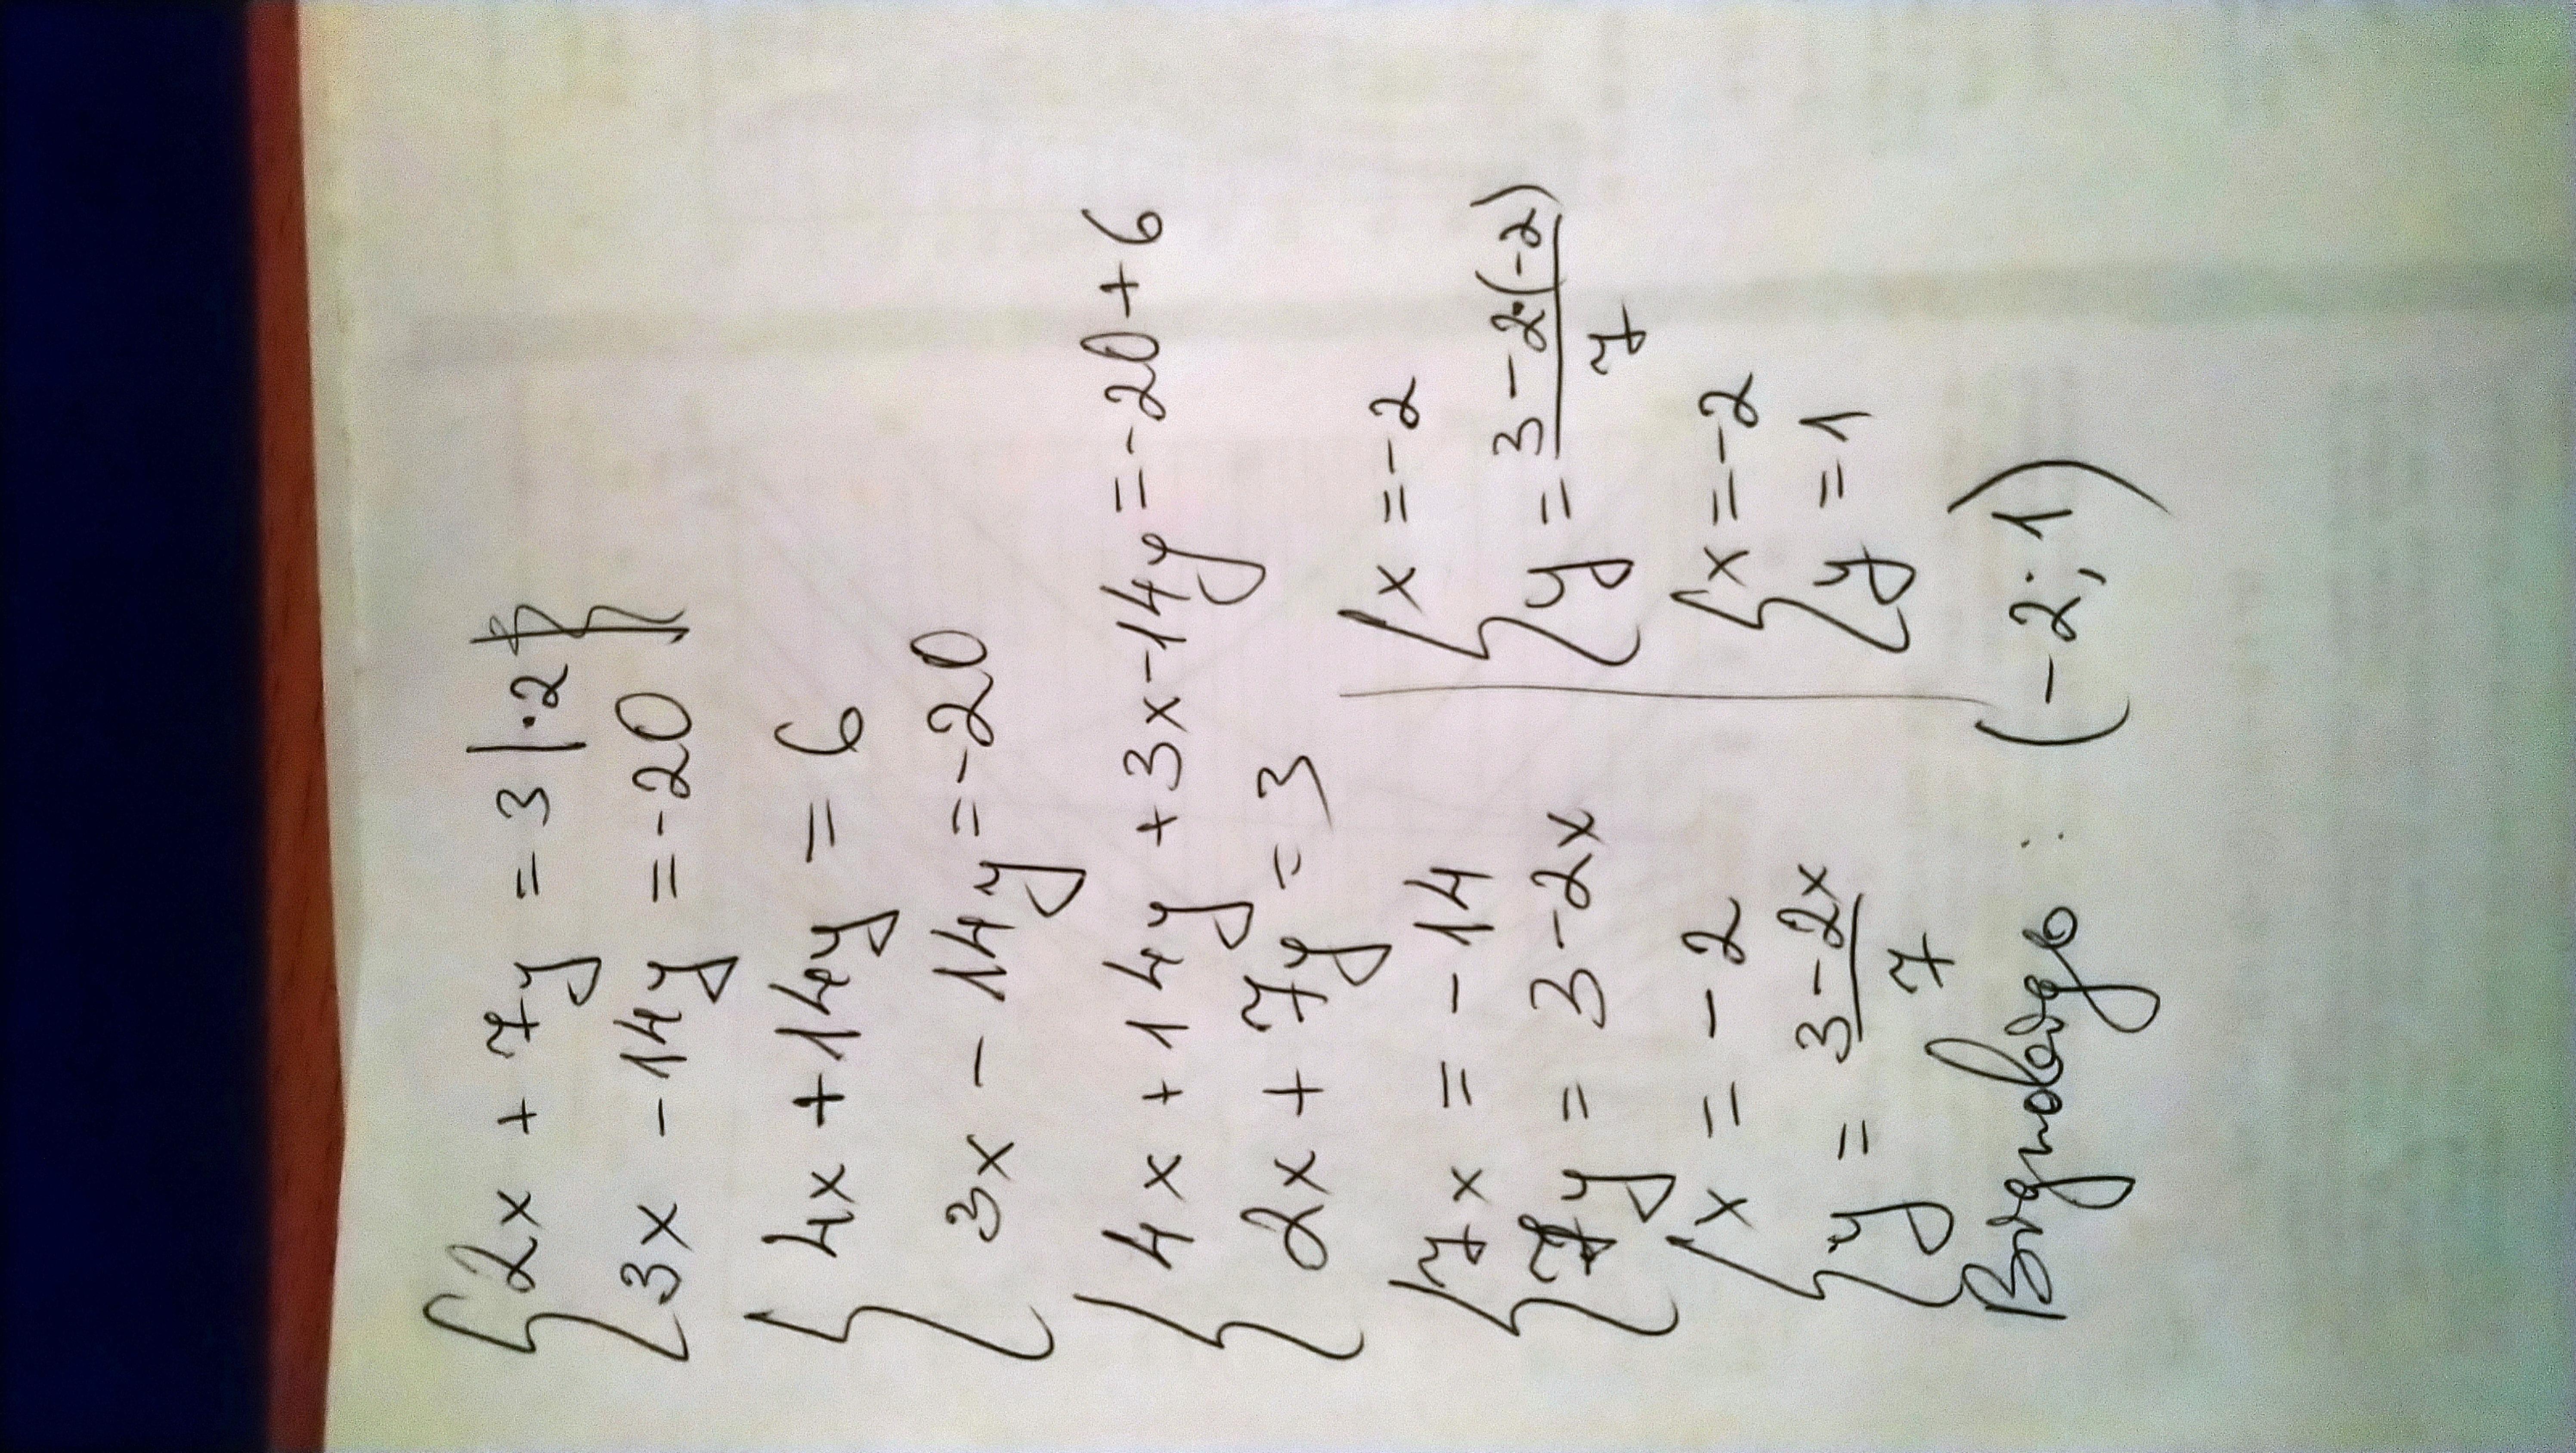 { 2x + 7y = 3 |·2
3x - 14y = -20
{ 4x + 14y = 6
3x - 14y = -20
{ 4x + 14y + 3x - 14y = -20 + 6
2x + 7y = 3
{ 7x = -14
7y = 3 - 2x
{ x = -2
y = (3 - 2x)/7
{ x = -2
y = (3 - 2·(-2))/7
{ x = -2
y = 1
(-2; 1)